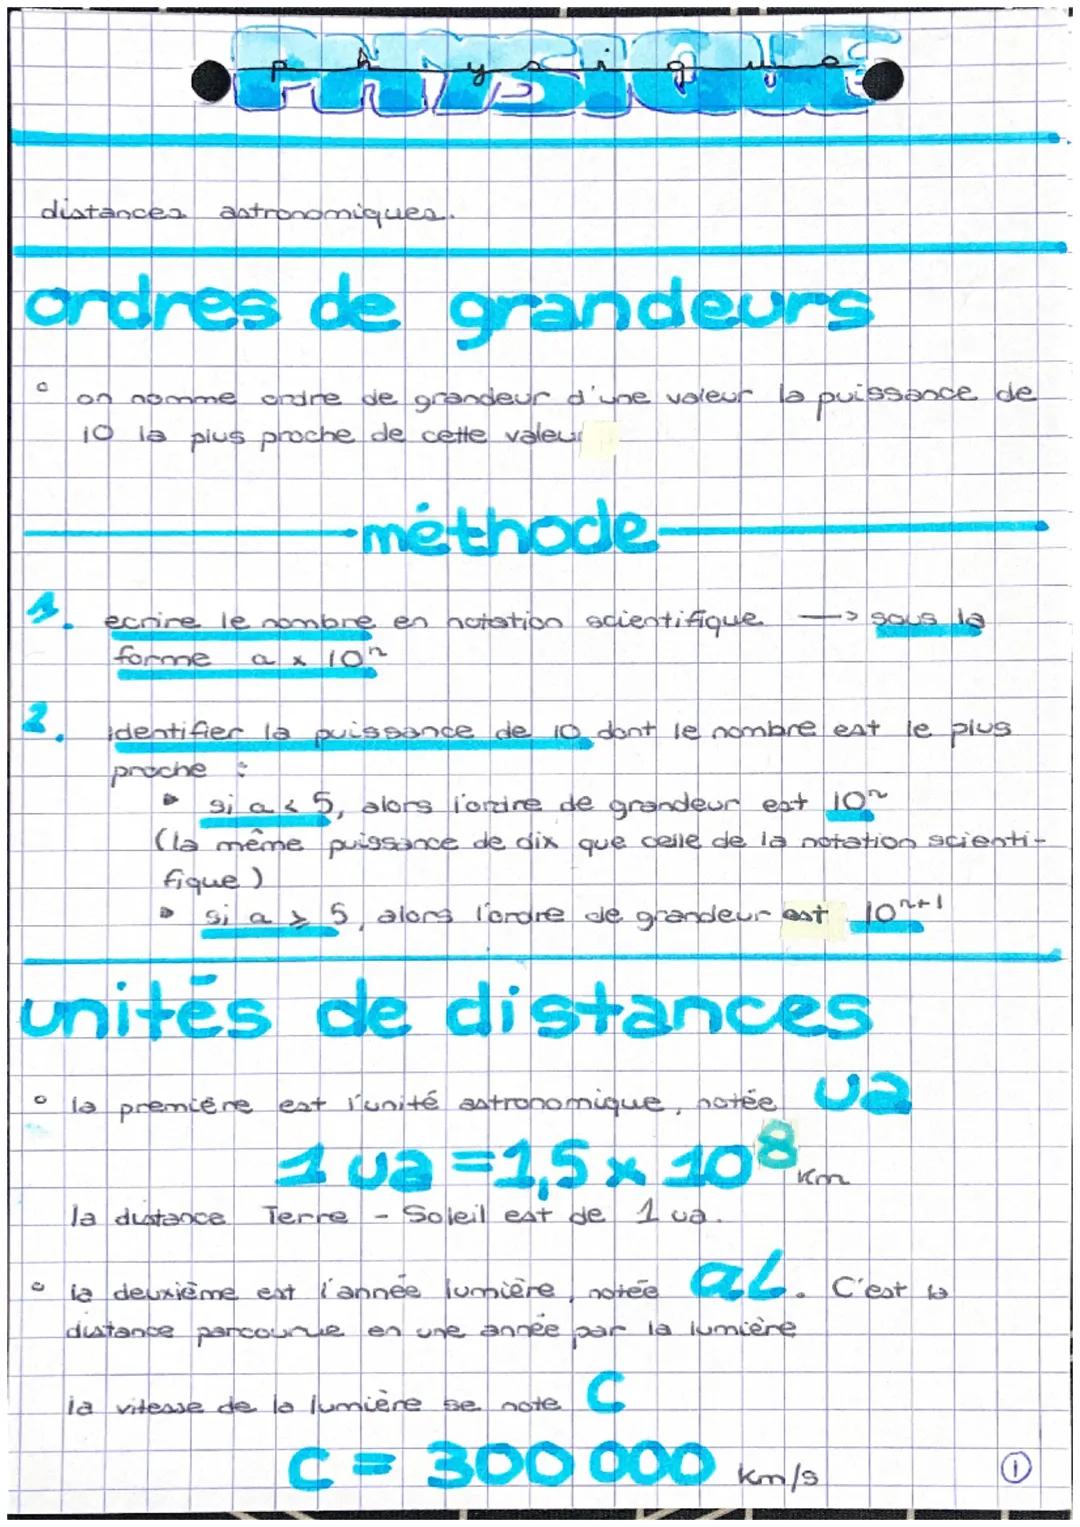 PHYSIQUE
physique
distances astronomiques.
ordres de grandeurs
on nomme ordre de grandeur d'une valeur la puissance de
10 la plus proche de cette valeur
méthode
1. ecrire le nombre en notation scientifique → sous la
forme a x 10ⁿ
2. identifier la puissance de 10 dont le nombre est le plus
proche :
si a < 5, alors l'ordre de grandeur est 10ⁿ
(la même puissance de dix que celle de la notation scienti-
fique)
si a ⩾ 5, alors l'ordre de grandeur est 10ⁿ⁺¹
unités de distances
la première est l'unité astronomique, notée ua
1 ua = 1,5 x 10⁸ km
la distance Terre - Soleil est de 1 ua.
la deuxième est l'année lumière, notée aL. C'est la
distance parcourue en une année par la lumière
la vitesse de la lumière se note C
C = 300 000 km/s
1